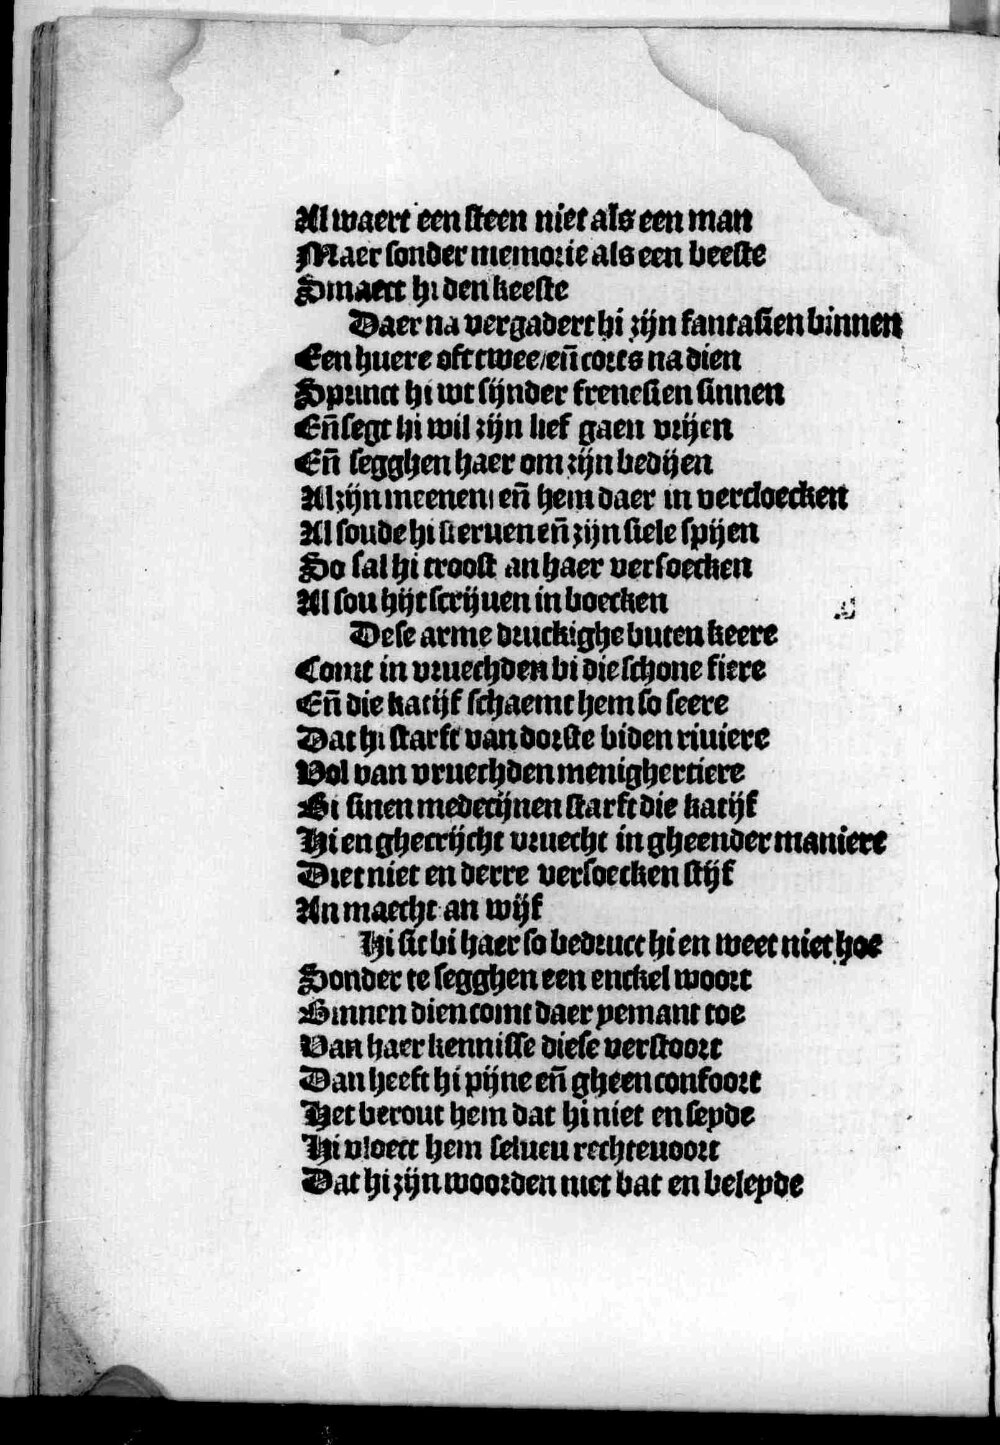 Al waert een steen niet als een man
Maer sonder memorie als een beeste
Smaect hi den keeste
Daer na vergadert hi zijn fantasien binnen
Een huere oft twee/ en̄ corts na dien
Sprinct hi wt sijnder frenesien sinnen
En̄ segt hi wil zijn lief gaen vrijen
En̄ segghen haer om zijn bedijen
Al zijn meenen/ en̄ hem daer in vercloecken
Al soude hi sterven en̄ zijn siele spijen
So sal hi troost an haer versoecken
Al sou hijt scrijven in boecken
Dese arme druckighe buten keere
Comt in vruechden bi die schone fiere
En̄ die katijf schaemt hem so seere
Dat hi starft van dorste bi den riviere
Vol van vruechden menighertiere
Bi sinen medecijnen starft die katijf
Hi en ghecrijcht vruecht in gheender maniere
Diet niet en derre versoecken stijf
An maecht an wijf
Hi sit bi haer so bedruct hi en weet niet hoe
Sonder te segghen een enckel woort
Binnen dien comt daer yemant toe
Van haer kennisse diese verstoort
Dan heeft hi pijne en̄ gheen confoort
Het berout hem dat hi niet en seyde
Hi vloect hem selven rechtevoort
Dat hi zijn woorden niet bat en beleyde